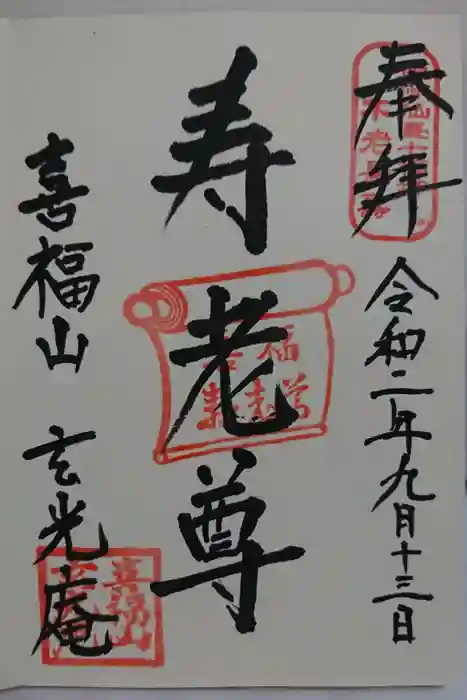 奉拝
令和二年九月十三日
寿老尊
喜福山
玄光庵